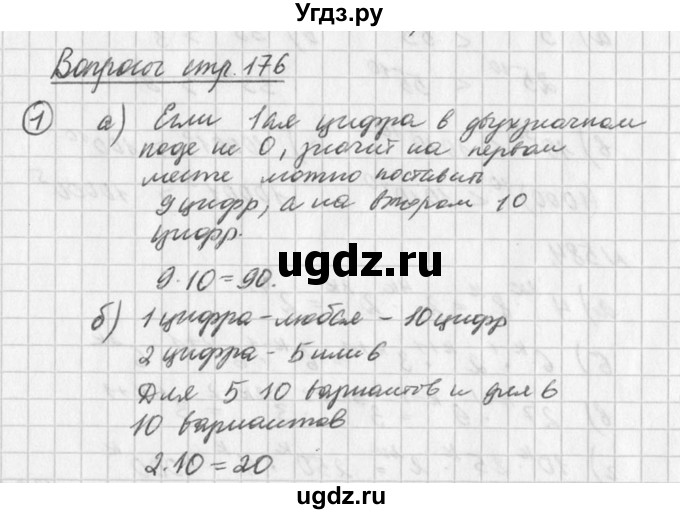 Угдз.ру
Вопросы стр. 176
1 а) Если 1ая цифра в двухзначном
коде не 0, значит на первом
месте можно поставить
9 цифр, а на втором 10
цифр.
ugdz.ru
9·10=90.
б) 1 цифра - любая - 10 цифр
2 цифра - 5 или 6
Для 5 10 вариантов и для 6
10 вариантов
2·10=20
ugdz.ru